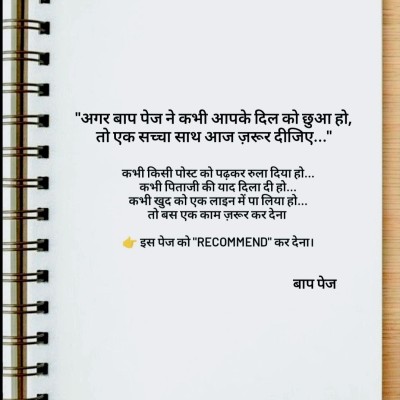 "अगर बाप पेज ने कभी आपके दिल को छुआ हो,
तो एक सच्चा साथ आज ज़रूर दीजिए..."
कभी किसी पोस्ट को पढ़कर रुला दिया हो...
कभी पिताजी की याद दिला दी हो...
कभी खुद को एक लाइन में पा लिया हो...
तो बस एक काम ज़रूर कर देना
👉 इस पेज को "RECOMMEND" कर देना।
बाप पेज